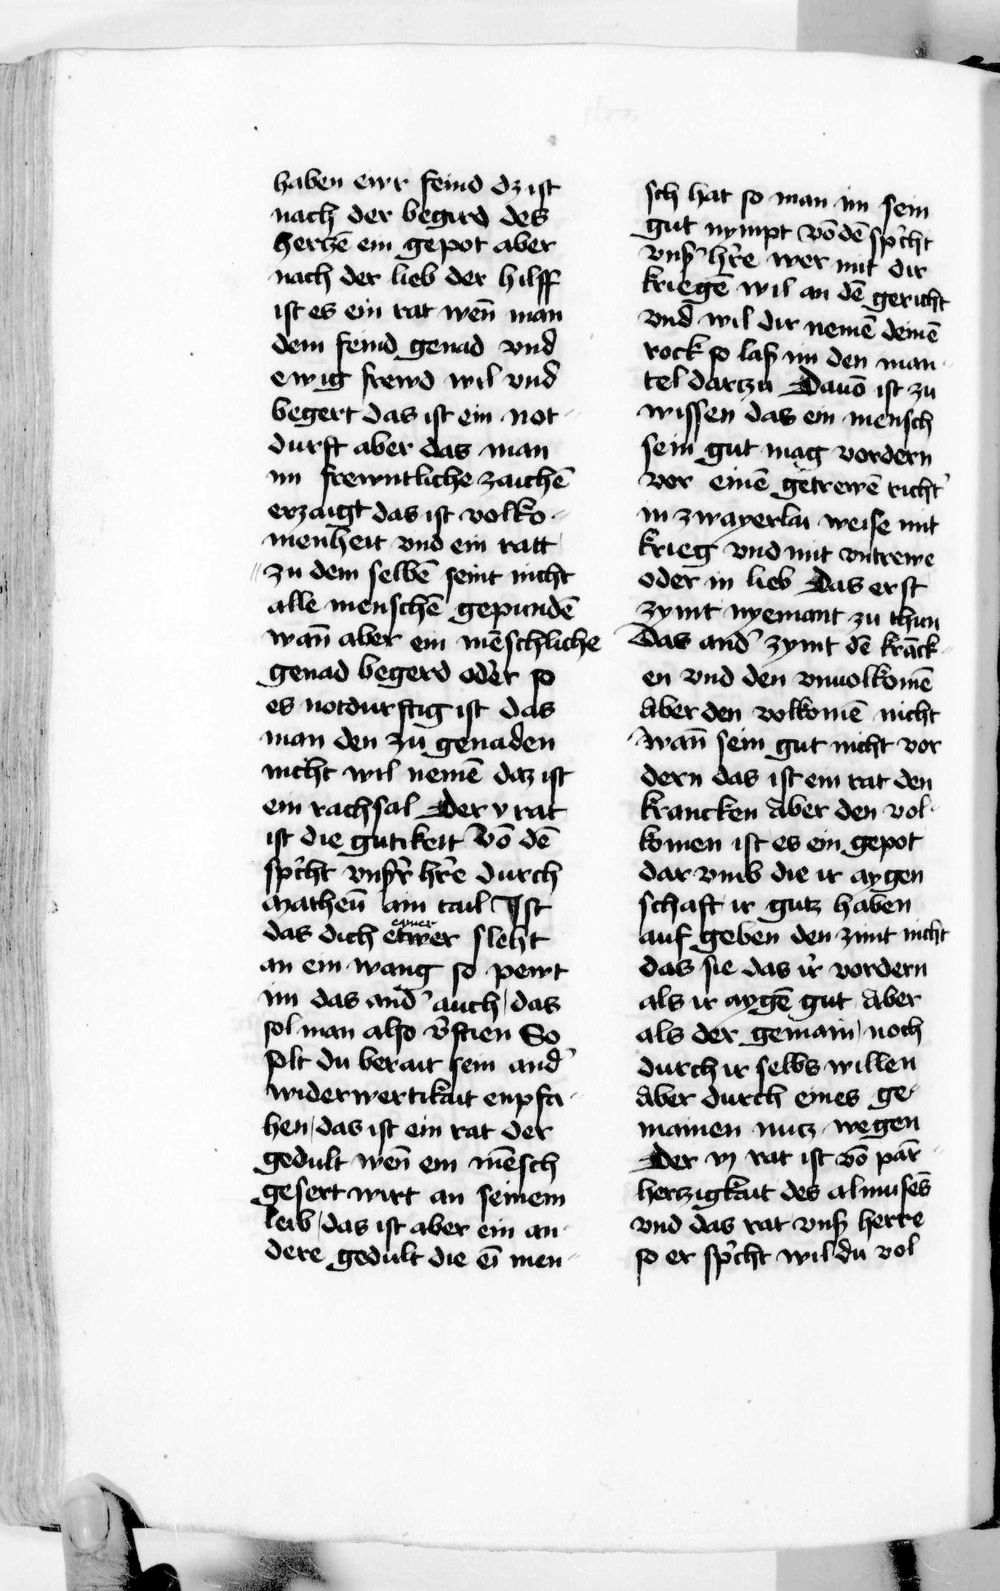 haben ewr feind dz ist
nach der begird des
Hertzē ein gepot aber
nach der lieb der hilff
ist es ein rat wen̄ man
dem feind genad vnd
ewig frewd wil vnd
begert das ist ein not-
durft aber das man
im frewntliche zaichē
erzaigt das ist volko-
menheit vnd ein ratt
zu dem selbē seint nicht
alle menschē gepundē
wan̄ aber ein mēschliche
genad begerd oder so
es notdurftig ist das
man den zu genaden
nicht wil nemē daz ist
ein rachsal Der v rat
ist die gutikeit Vō dē
sp̄cht vnßr̄ hr̄e durch
Matheū am tail Ist
das dich etwer eyner sleht
an ein wang so pewt
im das and' auch das
sol man also v̄stien So
solt du berait sein and'
widerwertikait enpfa-
hen das ist ein rat der
gedult wen̄ ein mēsch
gesert wirt an seinem
leib das ist aber ein an-
dere gedult die eī men-
sch hat so man im sein
gut nympt vō dē sp̄cht
vnß' hr̄e wer mit dir
kriegē wil an dē gericht
vnd wil dir nemē deinē
rock so laß im den man-
tel dartzu Dauō ist zu
wissen das ein mensch
sein gut mag vordern
vor einē getrewē richt'
in zwayerlai weise mit
krieg vnd mit vntrewe
oder in lieb Das erst
zymt nyemant zu thun
Das and' zymt dē krāck-
en vnd den vnuolkomē
Aber den volkomē nicht
Wan̄ sein gut nicht vor
dern das ist ein rat den
krancken Aber den vol-
komen ist es ein gepot
dar vmb die ir aygen
schaft ir gutz haben
auf geben den zimt nicht
das sie das ir vordern
als ir aygē gut Aber
als der gemain noch
durch ir selbs willen
Aber durch eines ge-
mainen nutz wegen
Der vj rat ist vō parm-
hertzigkait des almusēs
vnd das rat vnß herre
so er sp̄cht wil du vol